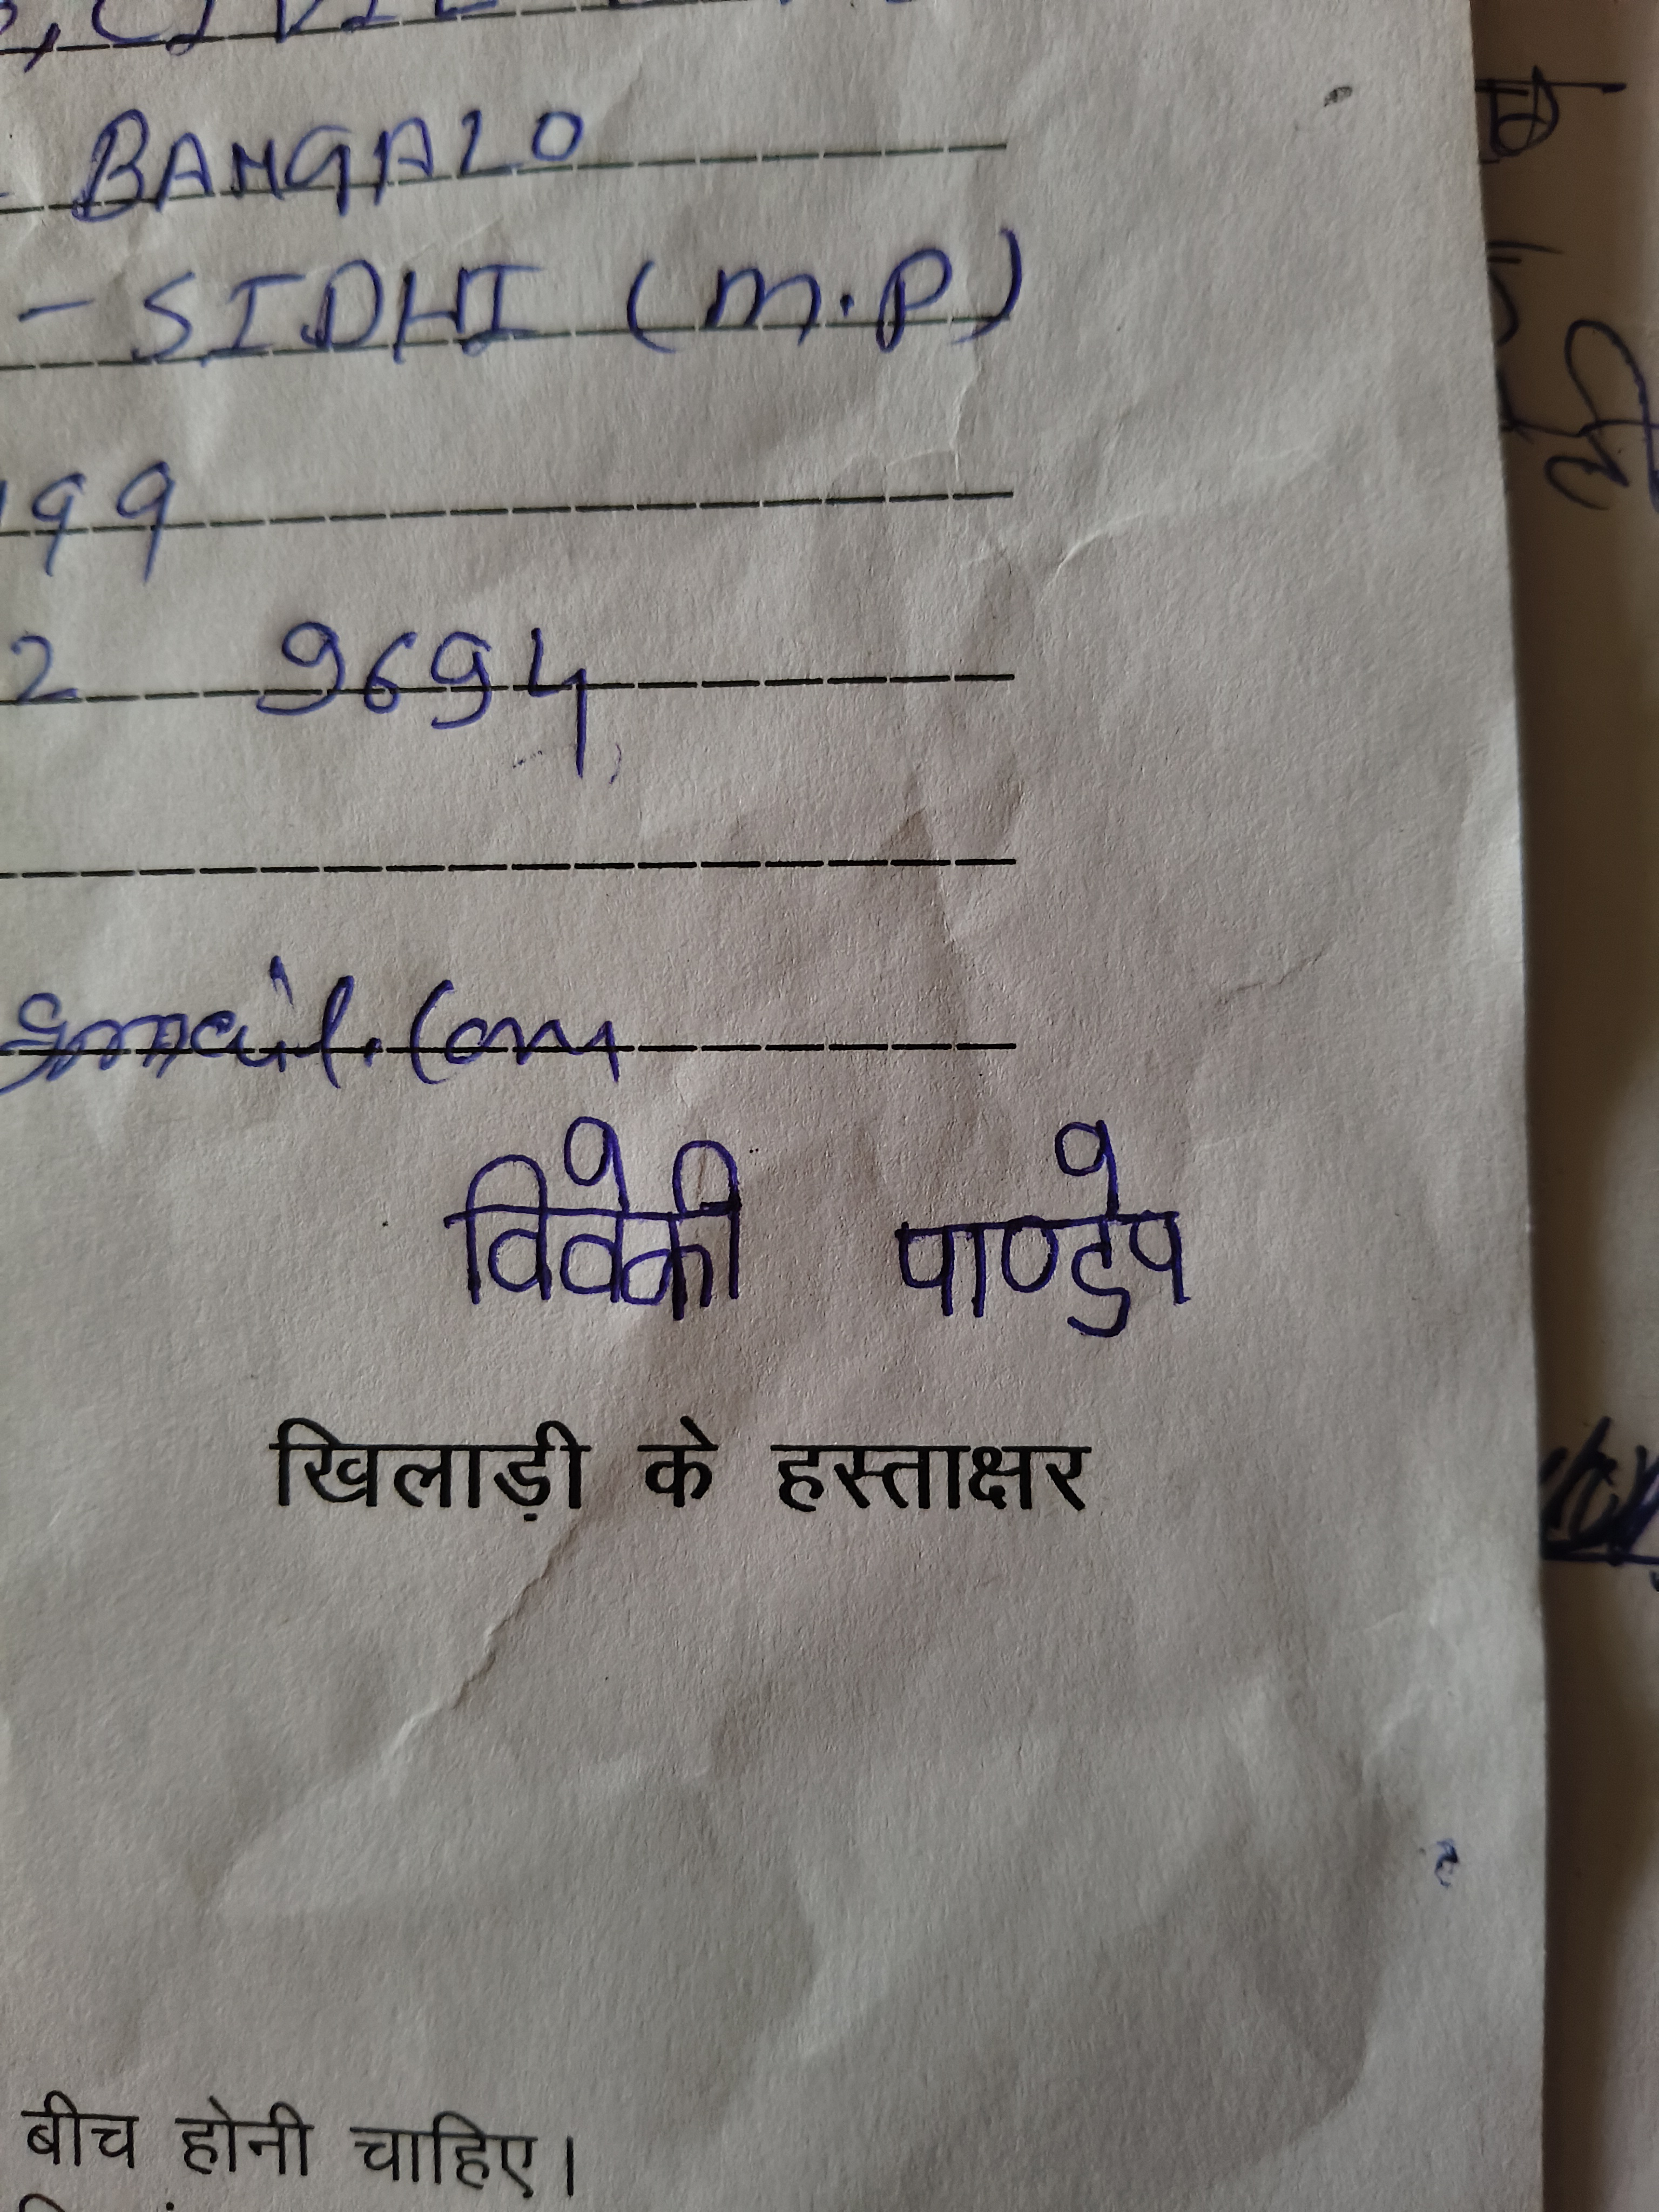 BANGALO
- SIDHI (M.P)
99
2 9694
gmail.com
विवेकी पाण्डेय
खिलाड़ी के हस्ताक्षर
बीच होनी चाहिए।